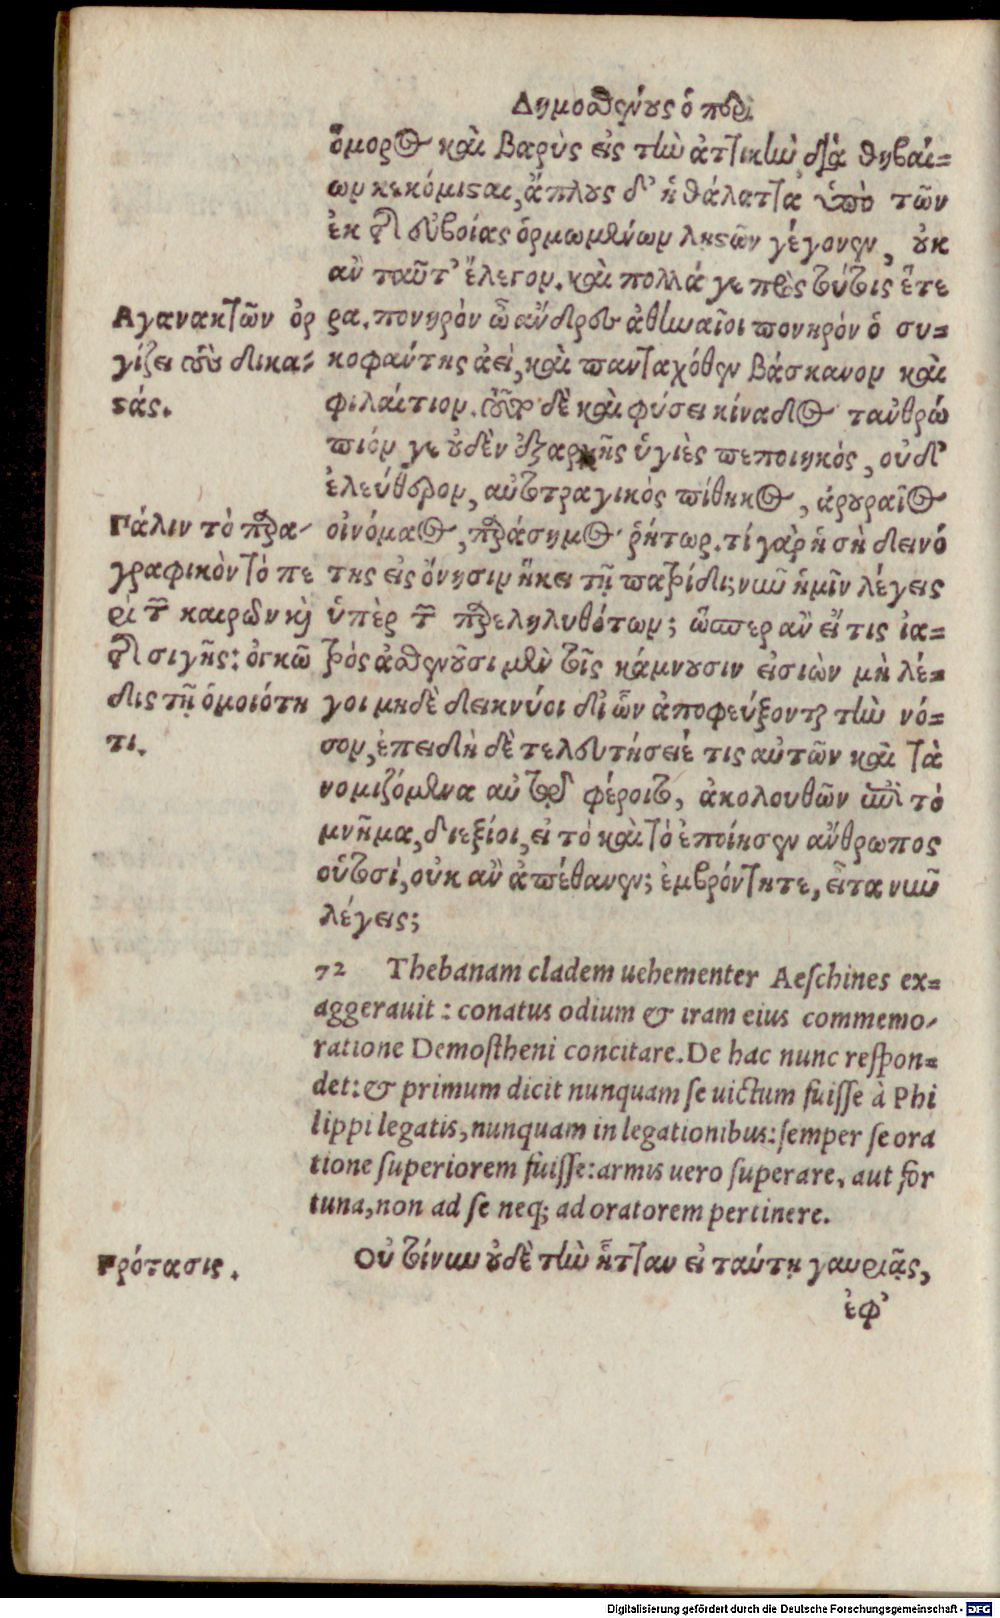 Δημοσθένους ὁ περὶ
ὅμορος καὶ βαρὺς εἰς τὴν ἀττικὴν διὰ θηβαί=
ων κεκόμισαι, ἄπλους δ' ἡ θάλαττα ὑπὸ τῶν
ἐκ τῆς εὐβοίας ὁρμωμένων λῃστῶν γέγονεν, οὐκ
αν ταῦτ' ἔλεγον. καὶ πολλά γε πρὸς τούτοις ἕτε
ρα. πονηρὸν ὦ ανδρες ἀθηναῖοι πονηρόν ὁ συ=
κοφαύτης ἀεὶ, καὶ πανταχόθεν βάσκανον καὶ
φιλαίτιον. τοῦτο δὲ καὶ φύσει κίναδος ταὐθρώ
πιόν γε οὐδὲν ἐξαρχῆς ὑγιὲς πεποιηκός, οὐδ'
ἐλεύθερον, αὐτοτραγικὸς πίθηκος, ἀρουραῖος
οἰνόμαος, παράσημος ῥήτωρ. τί γὰρ ἡ σὴ δεινό
της εἰς ὄνησιν ἥκει τῇ πατρίδι; νῦν ἡμῖν λέγεις
ὑπὲρ τῶν παρεληλυθότων; ὥσπερ αν εἴ τις ἰα=
τρὸς ἀσθενοῦσι μὲν τοῖς κάμνουσιν εἰσιὼν μὴ λέ=
γοι μηδὲ δεικνύοι δι' ὧν ἀποφεύξονται τὴν νό=
σον, ἐπειδὴ δὲ τελευτήσειέ τις αὐτῶν καὶ τὰ
νομιζόμενα αὐτῷ φέροιτο, ἀκολουθῶν ἐπὶ τὸ
μνῆμα, διεξίοι, εἰ τὸ καὶ τὸ ἐποίησεν αὔθρωπος
οὑτοσί, οὐκ αν ἀπέθανεν; ἐμβρόντητε, εἶτα νῦν
λέγεις;
Αγανακτῶν ὀρ
γίζει τοὺς δικα=
στάς.
Πάλιν τὸ παρα-
γραφικὸν τὸ πε
ρὶ τῶν καιρῶν καὶ
τῆς σιγῆς: ὀγκῶ
δις τῇ ὁμοιότη
τι.
72 Thebanam cladem uehementer Aeschines ex=
aggerauit: conatus odium & iram eius commemo-
ratione Demostheni concitare. De hac nunc respon=
det: & primum dicit nunquam se uictum fuisse à Phi
lippi legatis, nunquam in legationibus: semper se ora
tione superiorem fuisse: armis uero superare, aut for
tuna, non ad se neq; ad oratorem pertinere.
Πρότασις.
Οὐ τοίνυν οὐδὲ τὴν ἧτταν εἰ ταύτῃ γαυριᾷς,
ἐφ'
Digitalisierung gefördert durch die Deutsche Forschungsgemeinschaft - DFG